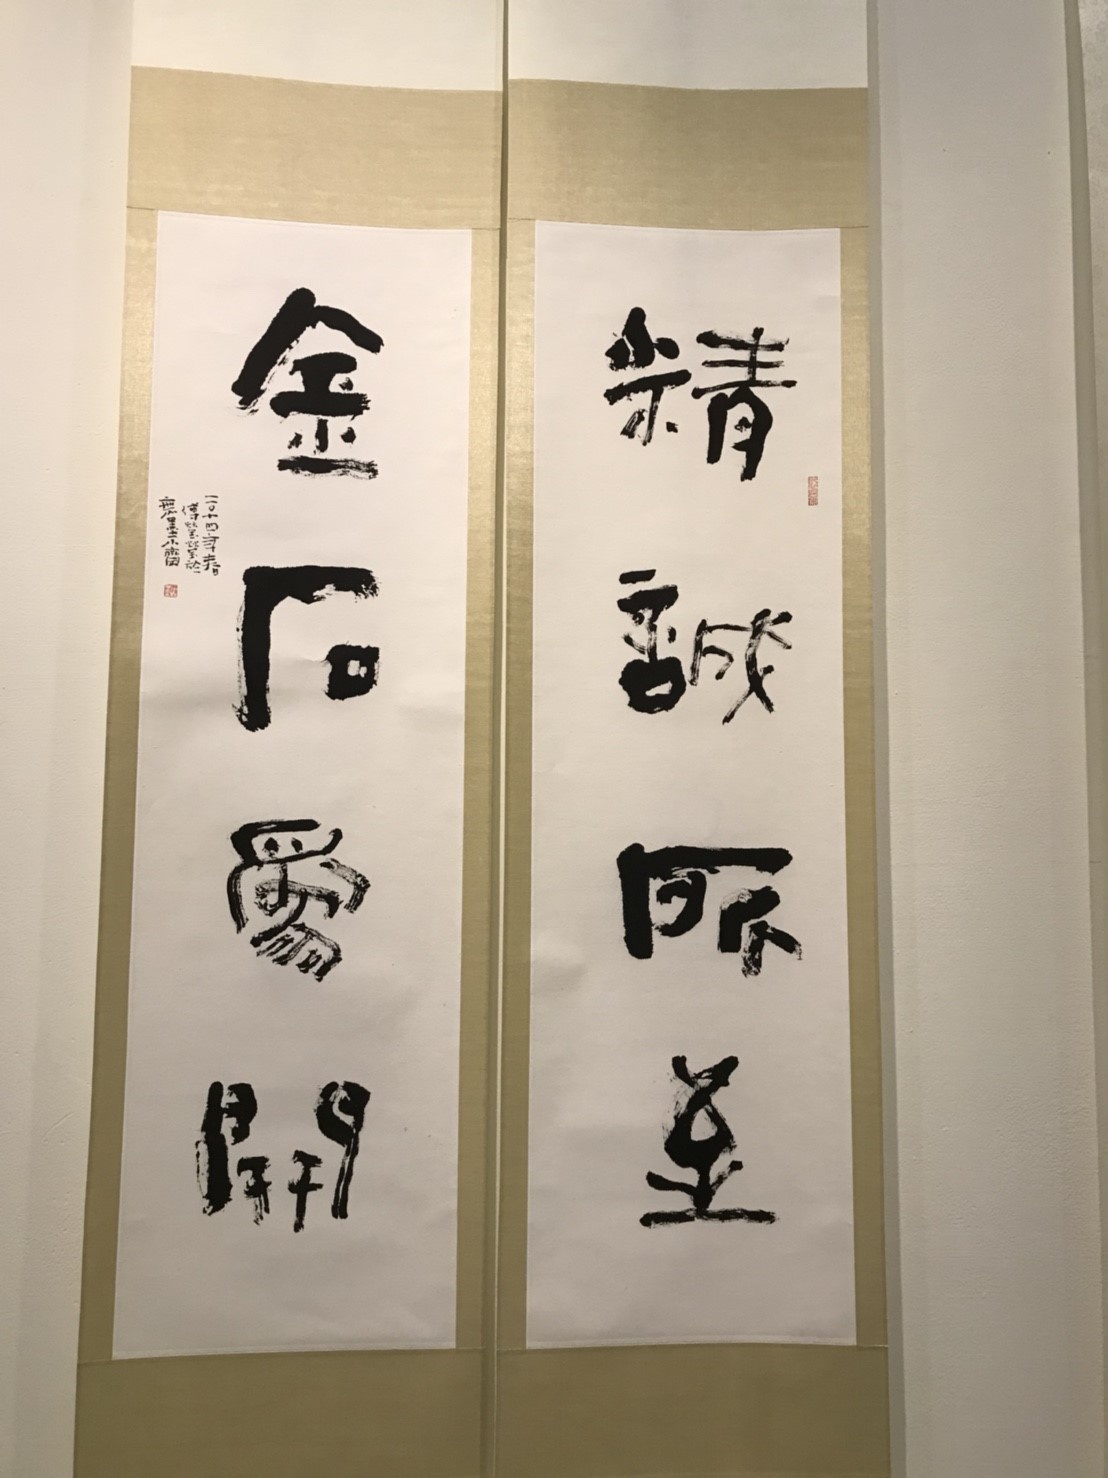 精誠所至
金石為開
二〇十四年春